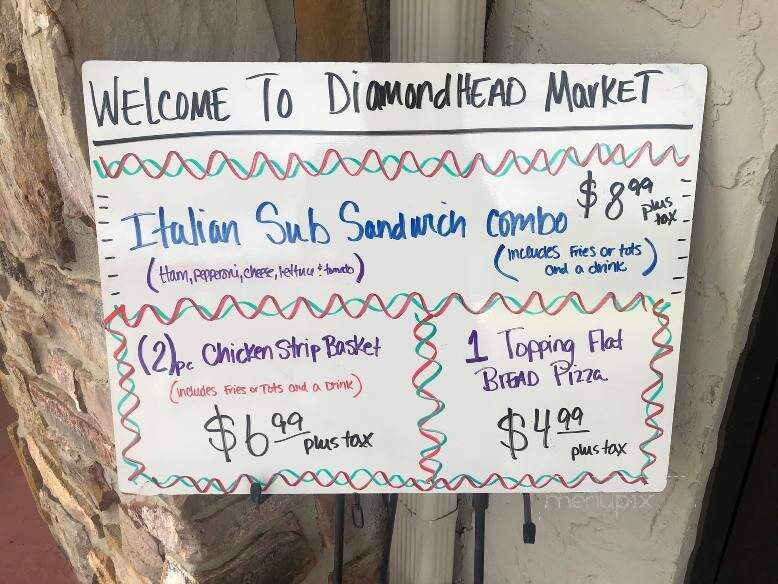 WELCOME TO DiAMONDHEAD MARKET
Italian Sub Sandwich combo $8.99 plus tax
(Ham, pepperoni, cheese, lettuce & tomato)
(includes Fries or tots
and a drink)
(2)pc Chicken Strip Basket
(includes Fries or Tots and a Drink)
$6.99 plus tax
1 Topping Flat
BREAD Pizza
$4.99
plus tax
menupix